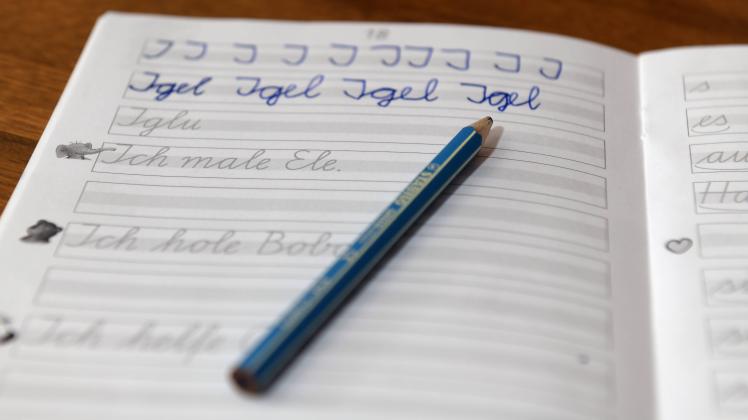 18
J J J J J J J J J J
Igel Igel Igel Igel
Iglu
Ich male Ele.
Ich hole Bobo
Ich helfe
s
es
au
Ha